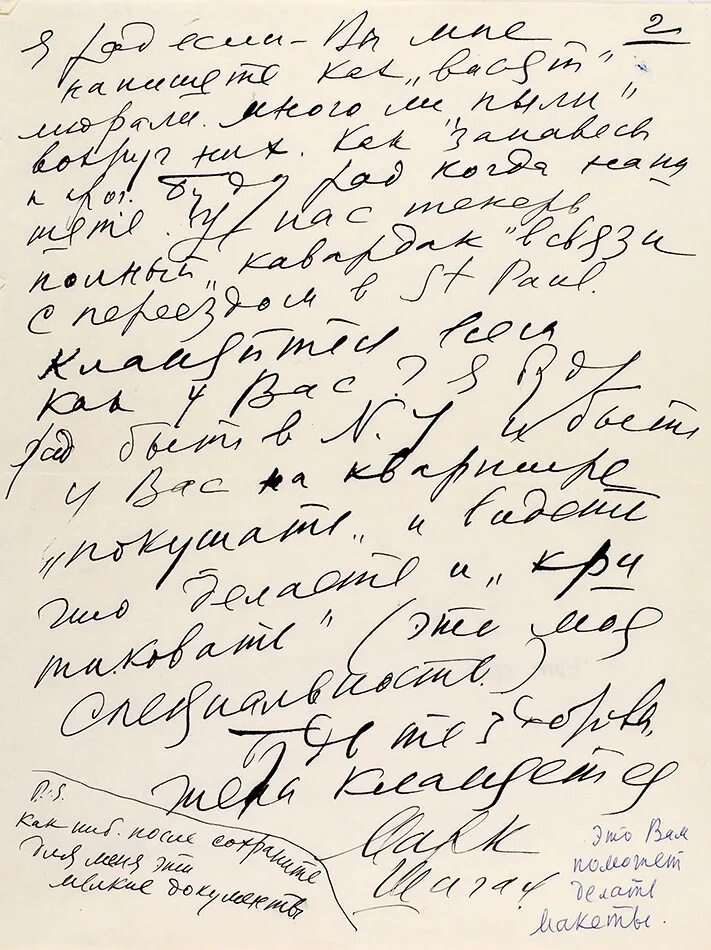 2
Я рад если – Вы мне
напишете как „висят”
мюрали. много ли „пыли”
вокруг них. Как „занавесь
и проч. Буду рад когда напи
шете. У нас теперь
полный „кавардак” в связи
с переездом в St Paul.
Кланяйтесь всем
как у Вас? Я Буду
рад быть в N.Y и быть
у Вас на квартире
„покушать„ и видеть
что делаете и „кри
тиковать” (это моя
специальность.)
Будьте здоровы,
жена кланяется
Марк
Шагал
P.S.
как ниб. после сохраните
для меня эти
мелкие документы
это Вам
поможет
делать
макеты.